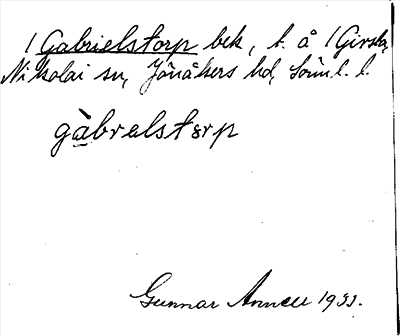 1 Gabrielstorp bek, t. å 1 Girsta,
Nikolai sn, Jönåkers hd, Söml. l.
gàbrelstɜrp
Gunnar Annell 1933.